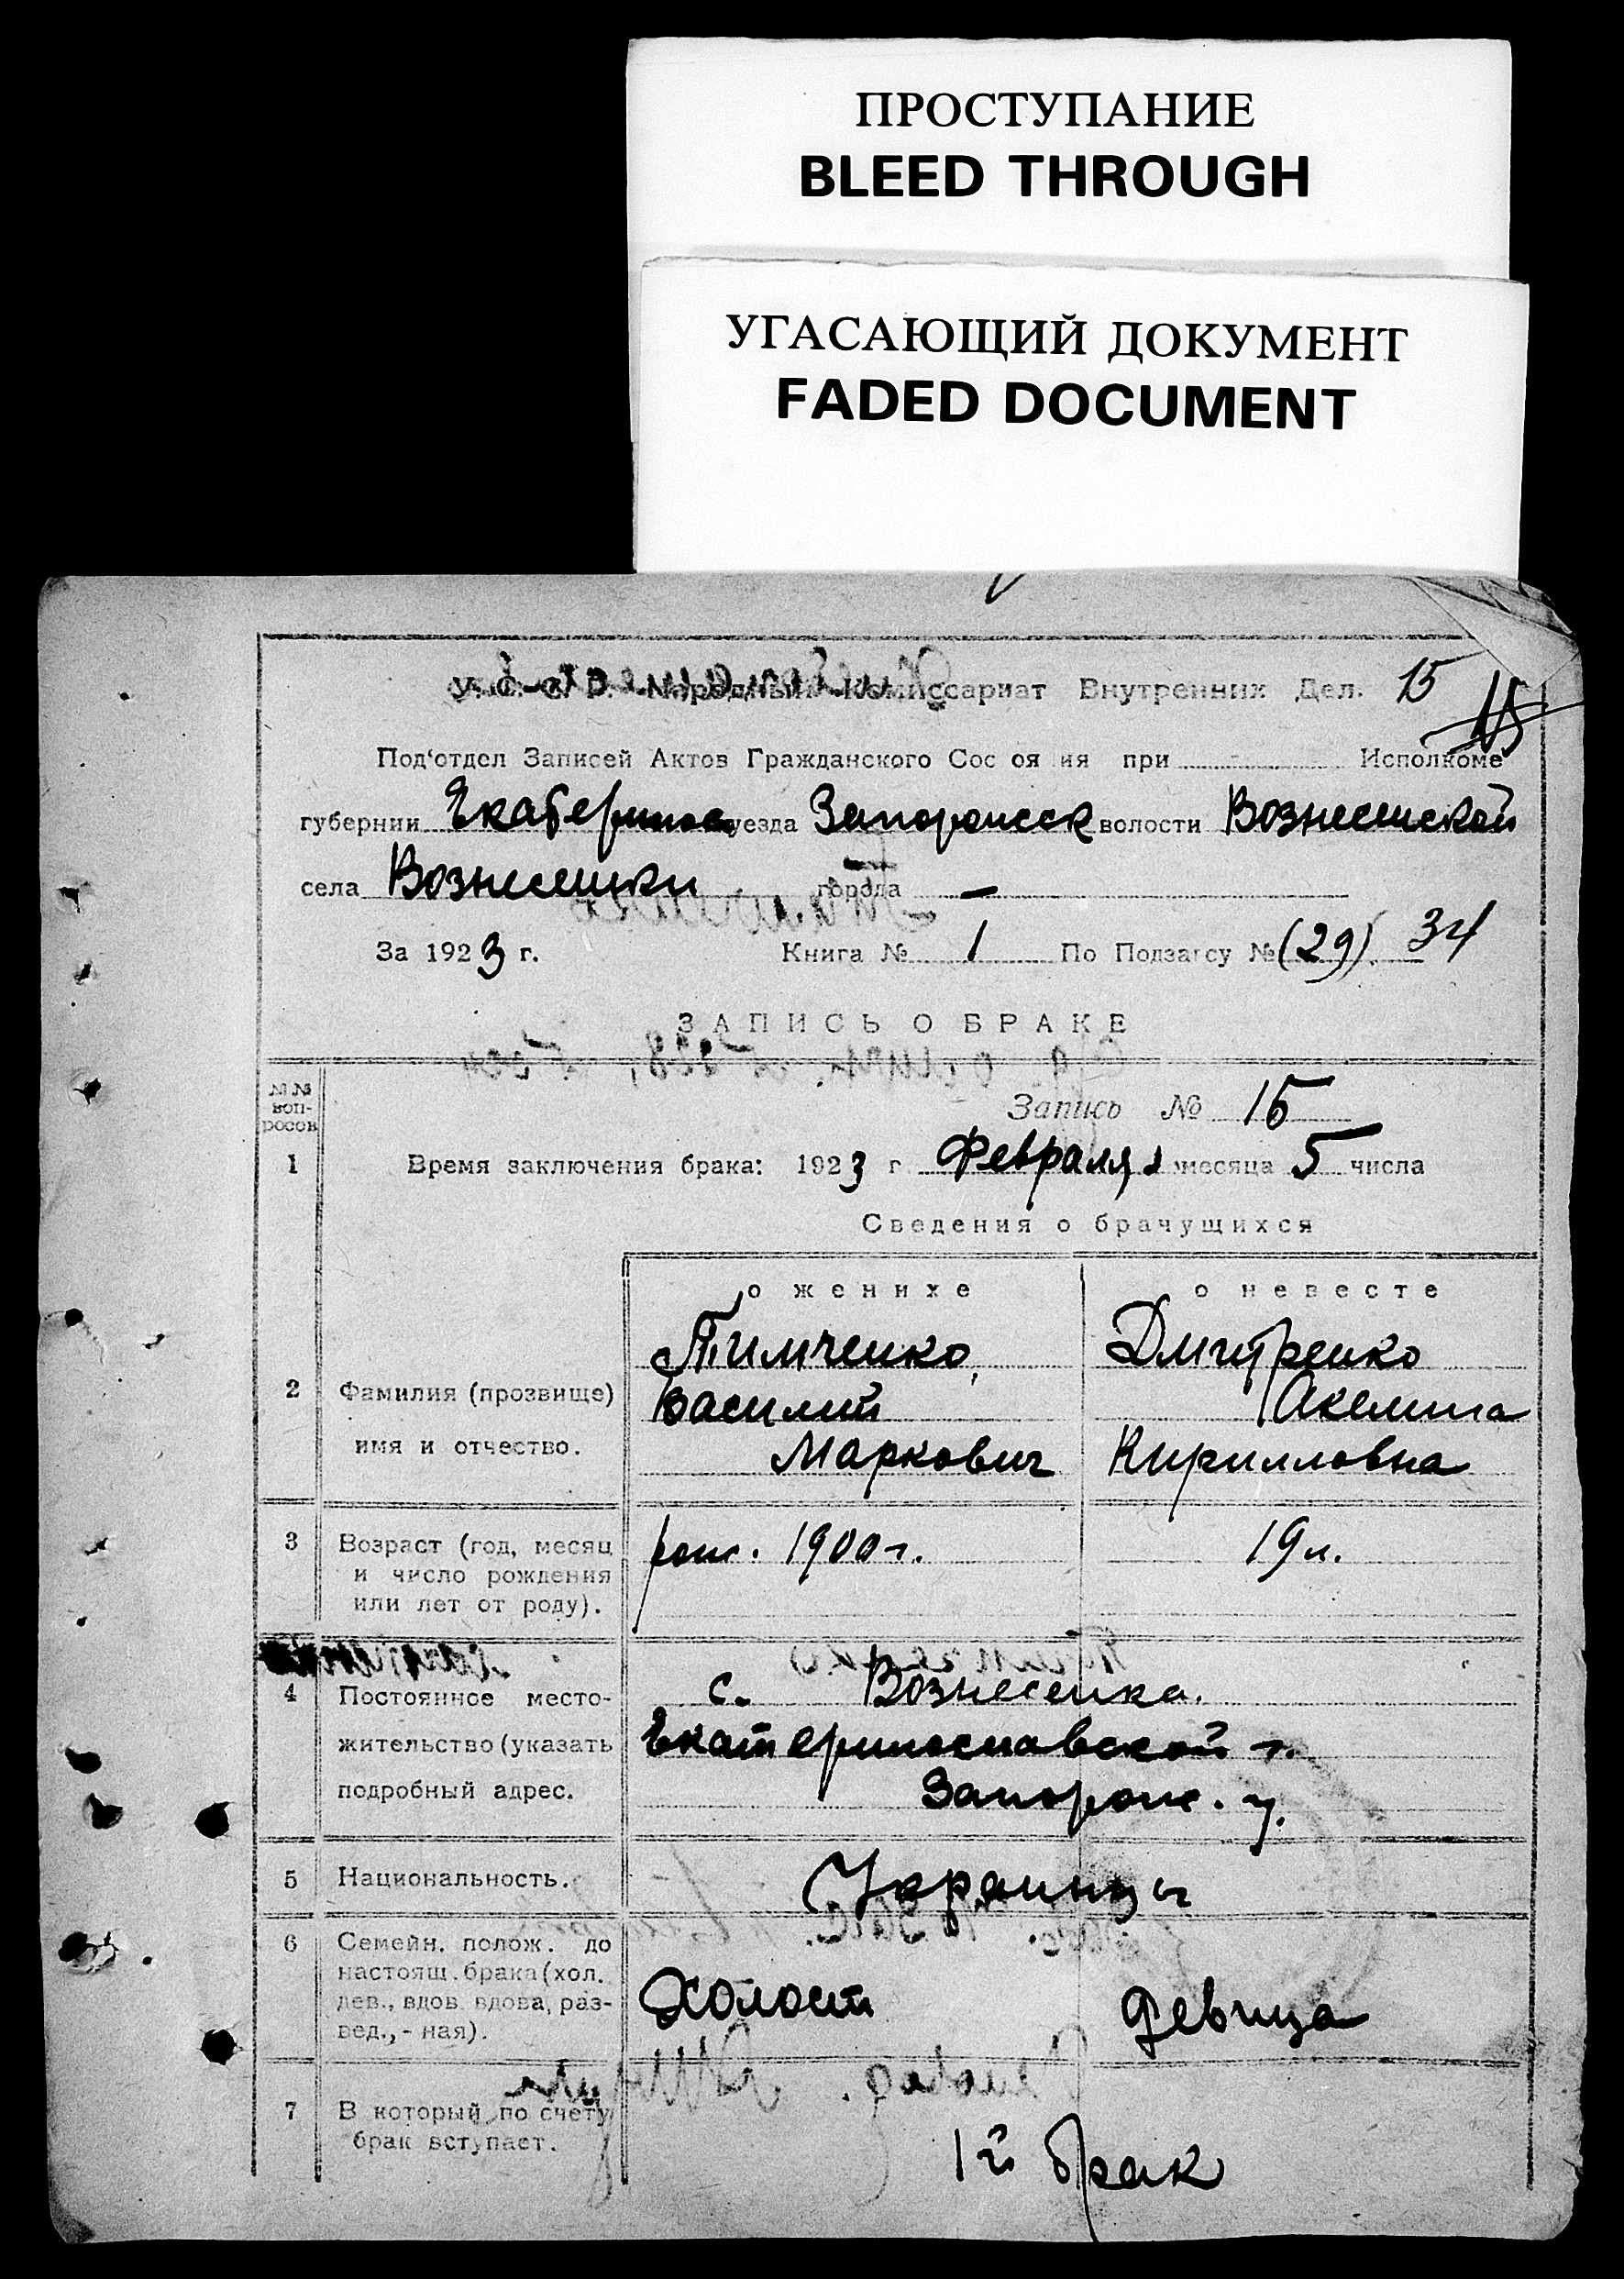 ПРОСТУПАНИЕ
BLEED THROUGH
УГАСАЮЩИЙ ДОКУМЕНТ
FADED DOCUMENT
У. С. С. Р. Народный Комиссариат Внутренних Дел. 15
15
Под'отдел Записей Актов Гражданского Сос оя ия при Исполкоме
губернии Екатеринос уезда Запорожск волости Вознесенской
села Вознесенки города —
За 1923 г. Книга № 1 По Подзагсу № (29). 34
ЗАПИСЬ О БРАКЕ
№№ воп-росов
Запись № 15
1 Время заключения брака: 1923 г Февраля месяца 5 числа
Сведения о брачущихся
о женихе о невесте
Тимченко, Дмитренко
2 Фамилия (прозвище) Василий Акелина
имя и отчество. Маркович Кирилловна
3 Возраст (год, месяц рож. 1900 г. 19 л.
и число рождения
или лет от роду).
4 Постоянное место- с. Вознесенка.
жительство (указать Екатеринославской г.
подробный адрес. Запорож. у.
5 Национальность. Украинцы
6 Семейн. полож. до
настоящ. брака (хол. Холост девица
дев., вдов. вдова, раз-
вед., - ная).
7 В который по счету
брак вступает. 1й брак